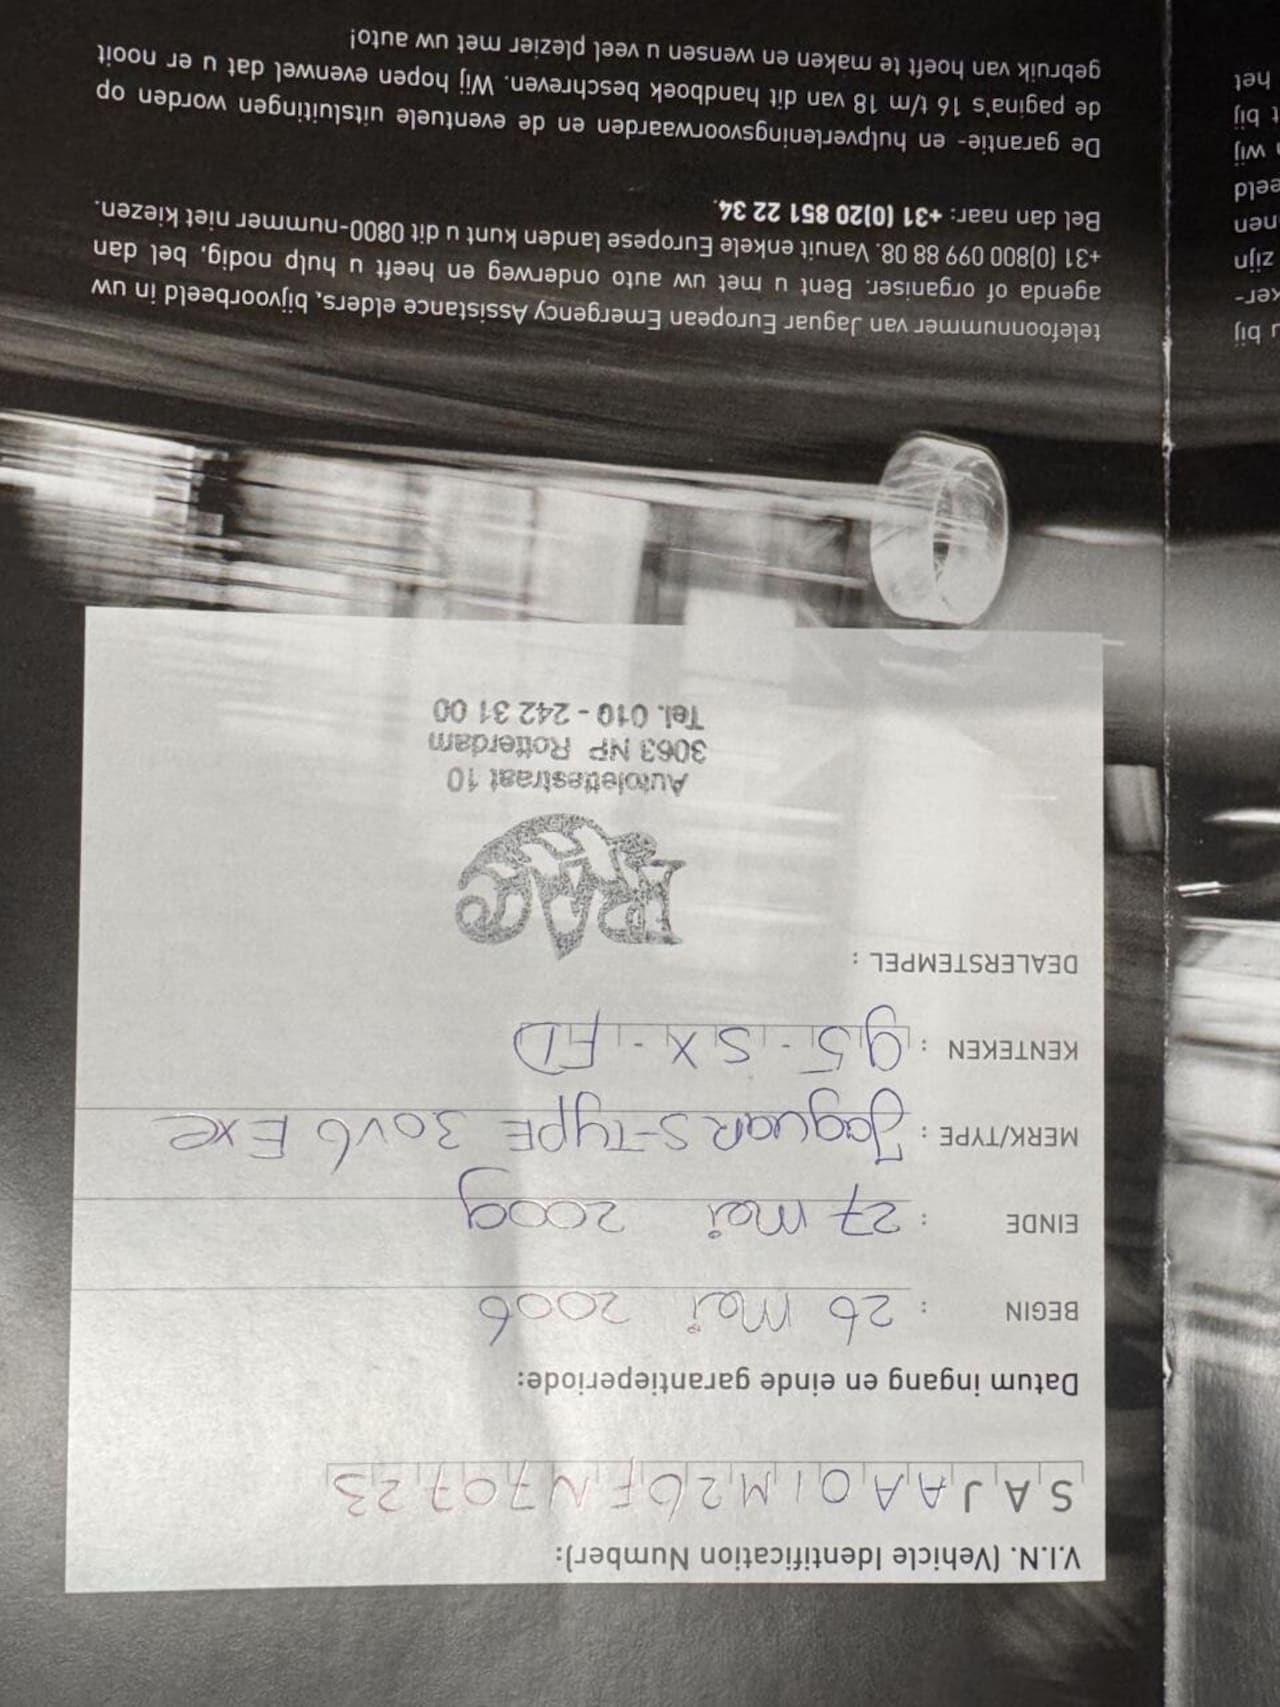 V.I.N. (Vehicle Identification Number):
SAJAA01M26FN70723
Datum ingang en einde garantieperiode:
BEGIN : 26 mei 2006
EINDE : 27 mei 2009
MERK/TYPE : Jaguar S-TYPE 3.0V6 Exe
KENTEKEN : 95-SX-FD
DEALERSTEMPEL :
Autolettestraat 10
3063 NP Rotterdam
Tel. 010 - 242 31 00
u bij
ker-
zijn
nen
eeld
wij
t bij
het
telefoonnummer van Jaguar European Emergency Assistance elders, bijvoorbeeld in uw
agenda of organiser. Bent u met uw auto onderweg en heeft u hulp nodig, bel dan
+31 (0)800 099 88 08. Vanuit enkele Europese landen kunt u dit 0800-nummer niet kiezen.
Bel dan naar: +31 (0)20 851 22 34.
De garantie- en hulpverleningsvoorwaarden en de eventuele uitsluitingen worden op
de pagina's 16 t/m 18 van dit handboek beschreven. Wij hopen evenwel dat u er nooit
gebruik van hoeft te maken en wensen u veel plezier met uw auto!